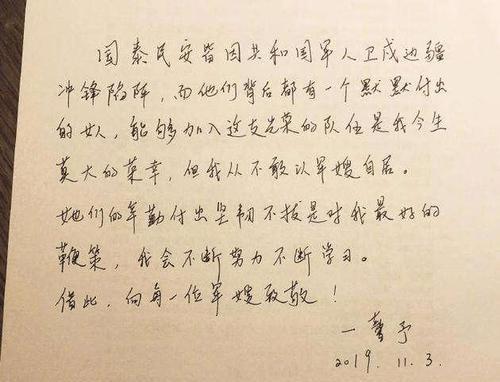 国泰民安皆因共和国军人卫戍边疆
冲锋陷阵，而他们背后都有一个默默付出
的女人，能够加入这支光荣的队伍是我今生
莫大的荣幸，但我从不敢以军嫂自居。
她们的辛勤付出坚韧不拔是对我最好的
鞭策，我会不断努力不断学习。
借此，向每一位军嫂致敬！
一 予
2019. 11. 3.